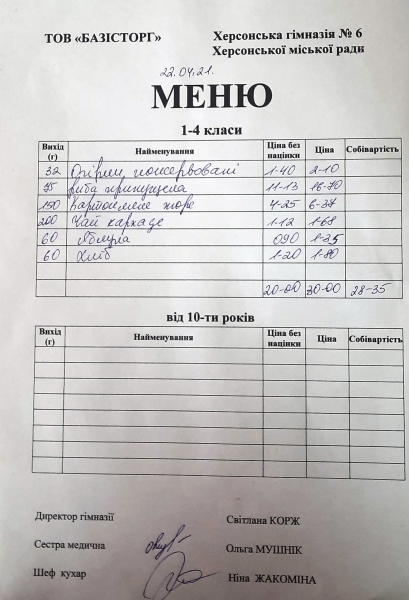 ТОВ «БАЗІСТОРГ» Херсонська гімназія № 6
Херсонської міської ради
22.04.21.
МЕНЮ
1-4 класи
Вихід (г) Найменування Ціна без націнки Ціна Собівартість
32 Огірки консервовані 1-40 2-10
75 Риба припущена 11-13 16-70
150 Картопляне пюре 4-25 6-37
200 Чай каркаде 1-12 1-68
60 Яблука 090 1-35
60 Хліб 1-20 1-80
20-00 30-00 28-35
від 10-ти років
Вихід (г) Найменування Ціна без націнки Ціна Собівартість
Директор гімназії Світлана КОРЖ
Сестра медична Ольга МУШНІК
Шеф кухар Ніна ЖАКОМІНА